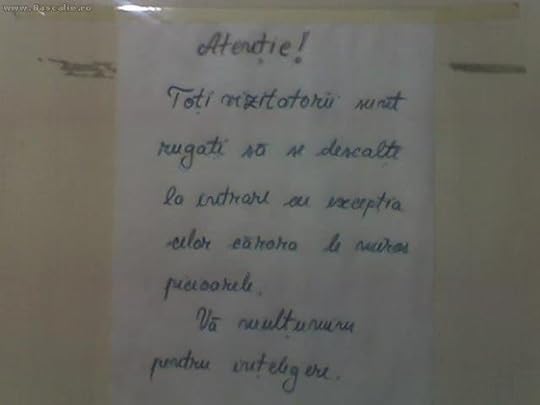 www.Bascalie.ro
Atenție!
Toți vizitatorii sunt
rugați să se descalțe
la intrare cu excepția
celor cărora le miros
picioarele.
Vă mulțumim
pentru înțelegere.